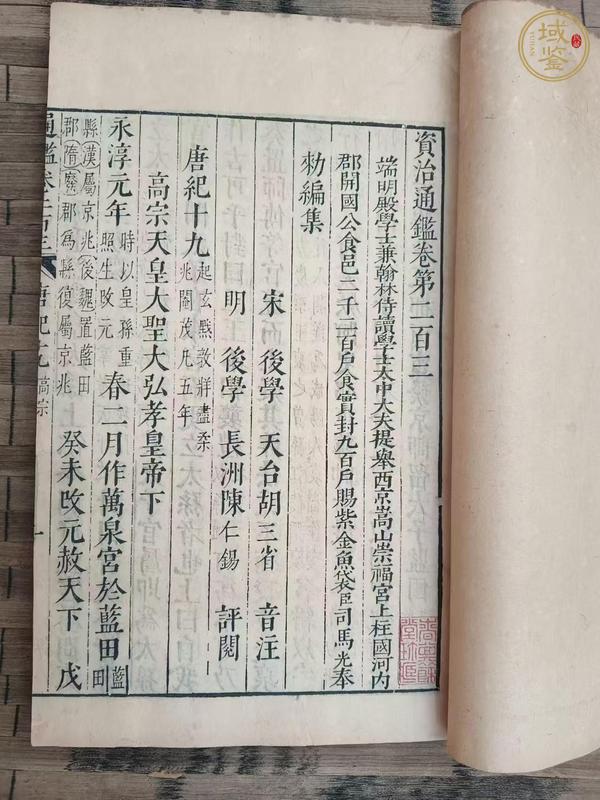 資治通鑑卷第二百三
端明殿學士兼翰林侍讀學士太中大夫提舉西京嵩山崇福宮上柱國河內
郡開國公食邑二千二百戶食實封九百戶賜紫金魚袋臣司馬光奉
勑編集
宋 後學 天台胡三省 音注
明 後學 長洲陳仁錫 評閱
唐紀十九起玄黓敦牂盡柔兆閹茂凡五年
高宗天皇大聖大弘孝皇帝下
永淳元年時以皇孫重照生改元春二月作萬泉宮於藍田藍田
縣漢屬京兆後魏置藍田郡隋廢郡為縣復屬京兆癸未改元赦天下戊
通鑑卷二百三 唐紀十九 高宗 一
域鑒
YUJIAN